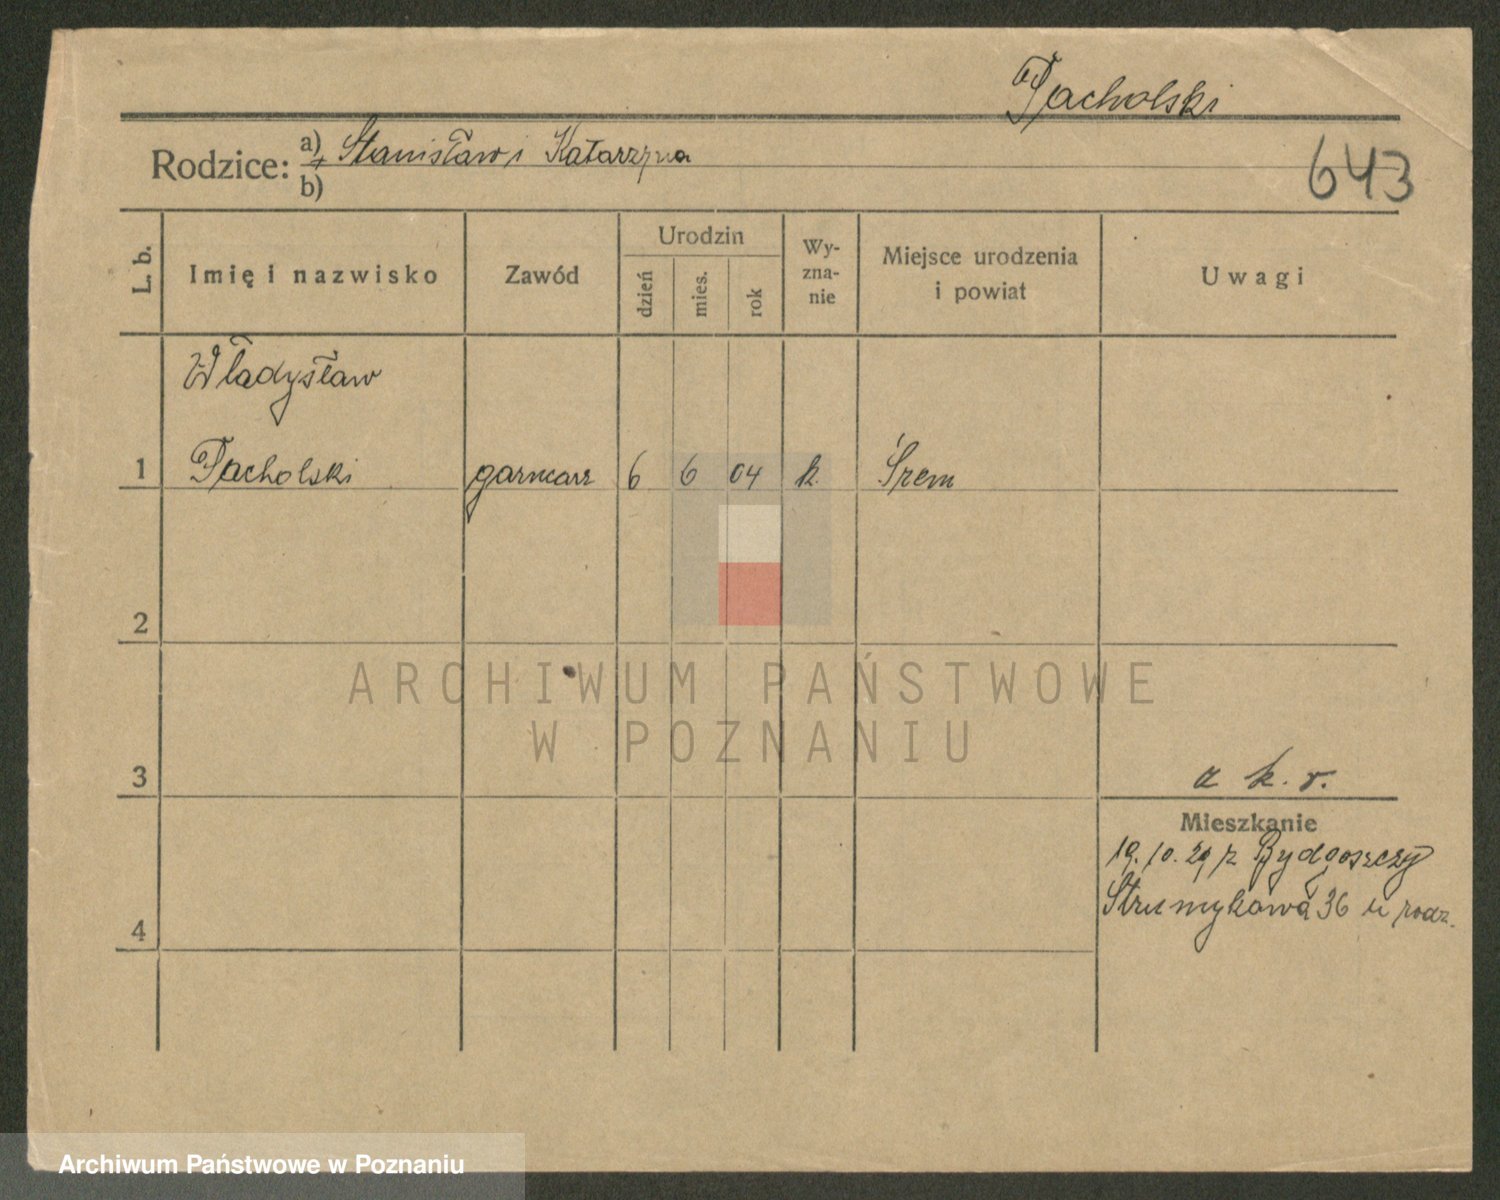 Pacholski
Rodzice: a) Stanisław i Katarzyna
b)
643
L. b.
Imię i nazwisko
Zawód
Urodzin
dzień
mies.
rok
Wy-
zna-
nie
Miejsce urodzenia
i powiat
Uwagi
Władysław
1 Pacholski garncarz 6 6 04 k. Śrem
2
3
k. r.
Mieszkanie
19. 10. 29 z Bydgoszczy
Strumykowa 36 u rodz.
4
ARCHIWUM PAŃSTWOWE
W POZNANIU
Archiwum Państwowe w Poznaniu